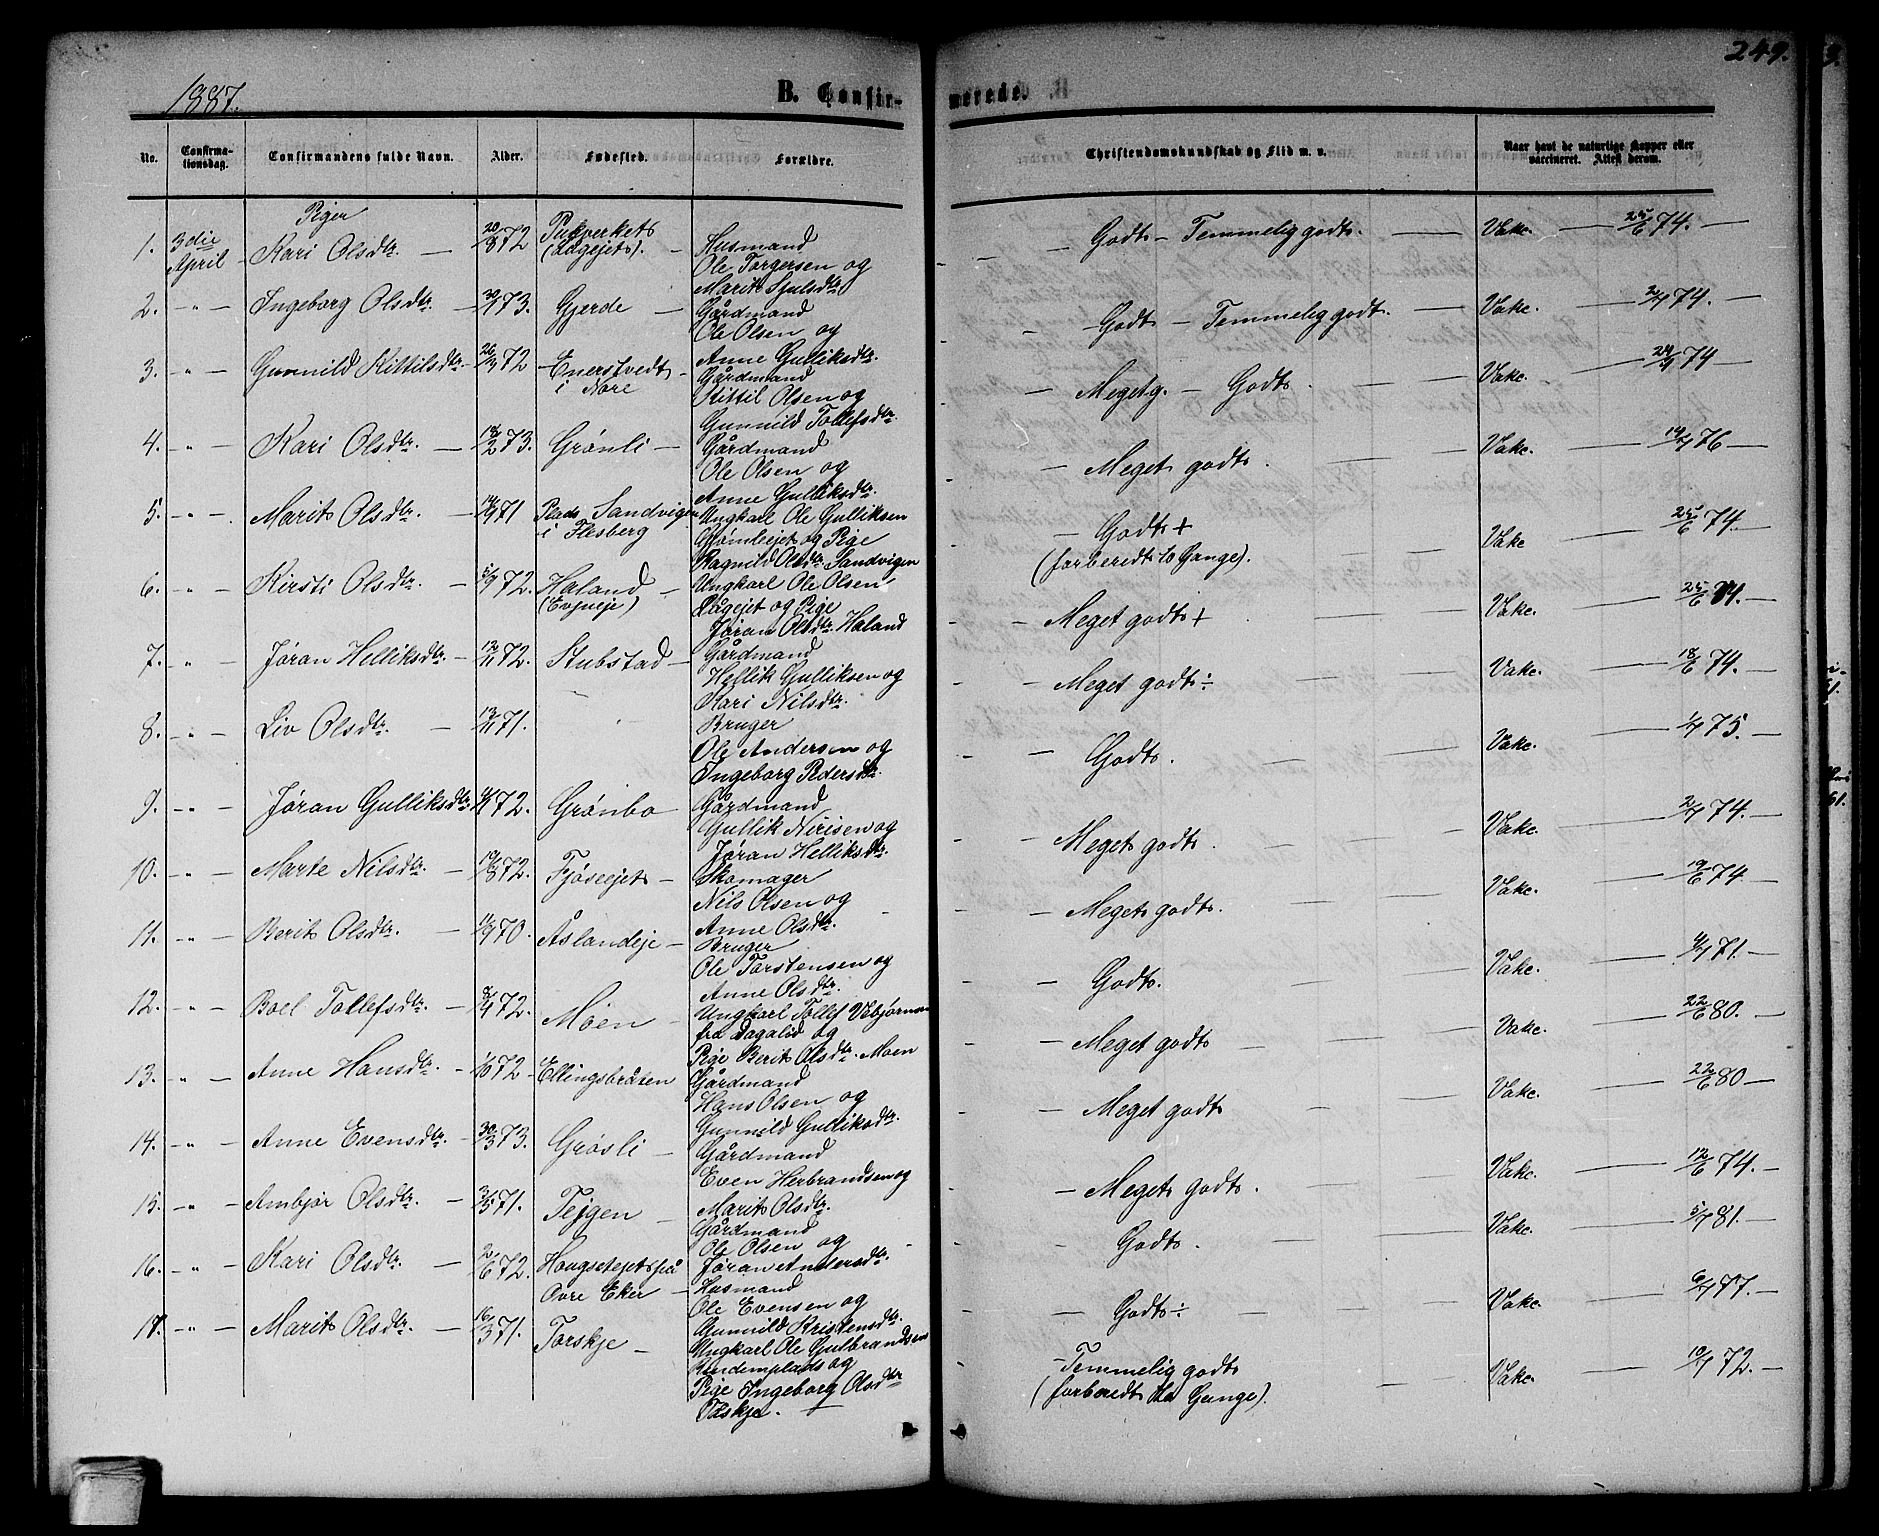 1887.
B. Confir-
merede.
249.
No.
Confirma-
tionsdag.
Confirmandens fulde Navn.
Alder.
Fødested.
Forældre.
Christendomskundskab og Flid m. v.
Naar havt de naturlige Kopper eller
vaccineret. Attest derom.
Piger
1. 3die April - Kari Olsdtr. - 20/8 72 Pukverkets (Lågejets). - Husmand Ole Torgersen og Marit Sjulsdtr. - Godt - Temmelig godt. - Vakc. - 25/6 74. -
2. - " - Ingeborg Olsdtr. - 30/1 73. Gjerde - Gårdmand Ole Olsen og Anne Gulliksdtr. - Godt - Temmelig godt. - Vakc. - 2/7 74. -
3. - " - Gunnild Kittilsdtr. - 26/3 72 - Enerstvedt i Nore - Gårdmand Kittil Olsen og Gunnild Tollefsdtr. - Meget g. - Godt. - Vakc. - 24/9 74
4. - " - Kari Olsdtr. - 18/2 73. Grønli - Gårdmand Ole Olsen og Anne Gulliksdtr. - Meget godt. - Vakc. - 14/7 76 -
5. - " - Marit Olsdtr. - 14/9 71 Plads Sandvigen i Flesberg Ungkarl Ole Gulliksen og Pige Ragnild Olsdtr. Sandvigen - Godt + (forberedt to Gange). - Vakc - 25/6 74. -
6. - " - Kirsti Olsdtr. - 5/9 72. Haland (Evjueje) - Ungkarl Ole Olsen Lågejet og Pige Jøran Olsdtr. Haland - Meget godt + - Vakc. - 25/6 74. -
7. - " - Jøran Helliksdtr. - 12/11 72. Stubstad - Gårdmand Hellik Gulliksen og Kari Nilsdtr. - Meget godt ÷ - Vakc. - 18/6 74. -
8. - " - Liv Olsdtr. - 13/11 71. " Bruger Ole Andersen og Ingeborg Pedersdtr. - Godt. - Vakc. - 1/7 75. -
9. - " - Jøran Gulliksdtr. 72. Grønbo Gårdmand Gullik Nirisen og Jøran Helliksdtr. - Meget godt. - Vakc. - 2/7 74. -
10. - " - Marte Nilsdtr. - 19/8 72. Fjøseejet - Skomager Nils Olsen og Anne Olsdtr. - Meget godt. - Vakc. - 19/6 74 -
11. - " - Berit Olsdtr. - 11/9 70. Åslandeje - Bruger Ole Torstensen og Anne Olsdtr. - Godt. - Vakc. - 4/7 71. -
12. - " - Boel Tollefsdtr. - 8/9 72. Moen - Ungkarl Tollef Vebjørnsen fra Dagalid og Pige Berit Olsdtr. Moen - Meget godt - Vakc. - 22/6 80. -
13. - " - Anne Hansdtr. - 1/10 72 - Ellingsbråten Gårdmand Hans Olsen og Gunnild Gulliksdtr. - Meget godt - Vakc. - 22/6 80 -
14. - " - Anne Evensdtr. - 30/3 73. Grøsli - Gårdmand Even Herbrandsen og Marit Olsdtr. - Meget godt. - Vakc. - 12/6 74. -
15. - " - Ambjør Olsdtr. - 3/5 71. Tejgen - Gårdmand Ole Olsen og Jøran Andersdtr. - Godt. - Vakc. - 5/7 81. -
16. - " - Kari Olsdtr. - 2/6 72. Haugsetejet på Øvre Eker - Husmand Ole Evensen og Gunnild Kristensdtr. - Godt ÷ - Vakc. - 6/7 77. -
17. - " - Marit Olsdtr. - 16/3 71. Torskje - Ungkarl Ole Gulbrandsen og Pige Ingeborg Olsdtr Toskje. - Temmelig godt (forberedt to Gange). - Vakc. - 10/7 72. -